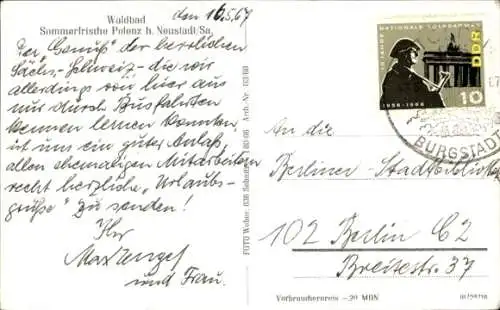 Waldbad
Sommerfrische Polenz b. Neustadt/Sa.
den 16.5.67
Der "Genuß" der herrlichen
Sächs. Schweiz - die wir
allerdings von hier aus
nur durch Busfahrten
kennen lernen konnten,
ist uns ein guter Anlaß,
allen ehemaligen Mitarbeitern
recht herzliche "Urlaubs-
grüße" zu senden!
Ihr
und Frau.
FOTO Weber, 836 Sebnitz
10 JAHRE NATIONALE VOLKSARMEE
DDR
1956-1966
10
BURGSTÄD
An die
Berliner
102 Berlin C2
Breitestr. 37
Verbraucherpreis -20 MDN